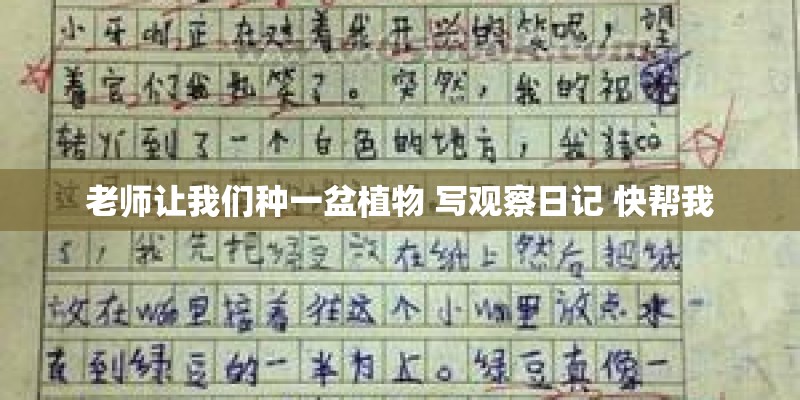 小牙好正在对着我开兴的笑呢，望
着它们我也笑了。突然，我的视
转丫到了一个白色的地方，我猜cǎ
老师让我们种一盆植物 写观察日记 快帮我
，我先把绿豆放在纸上然后把纸
放在wǎn里接着往这个小wǎn里放点水
到绿豆的一半为上。绿豆真像一